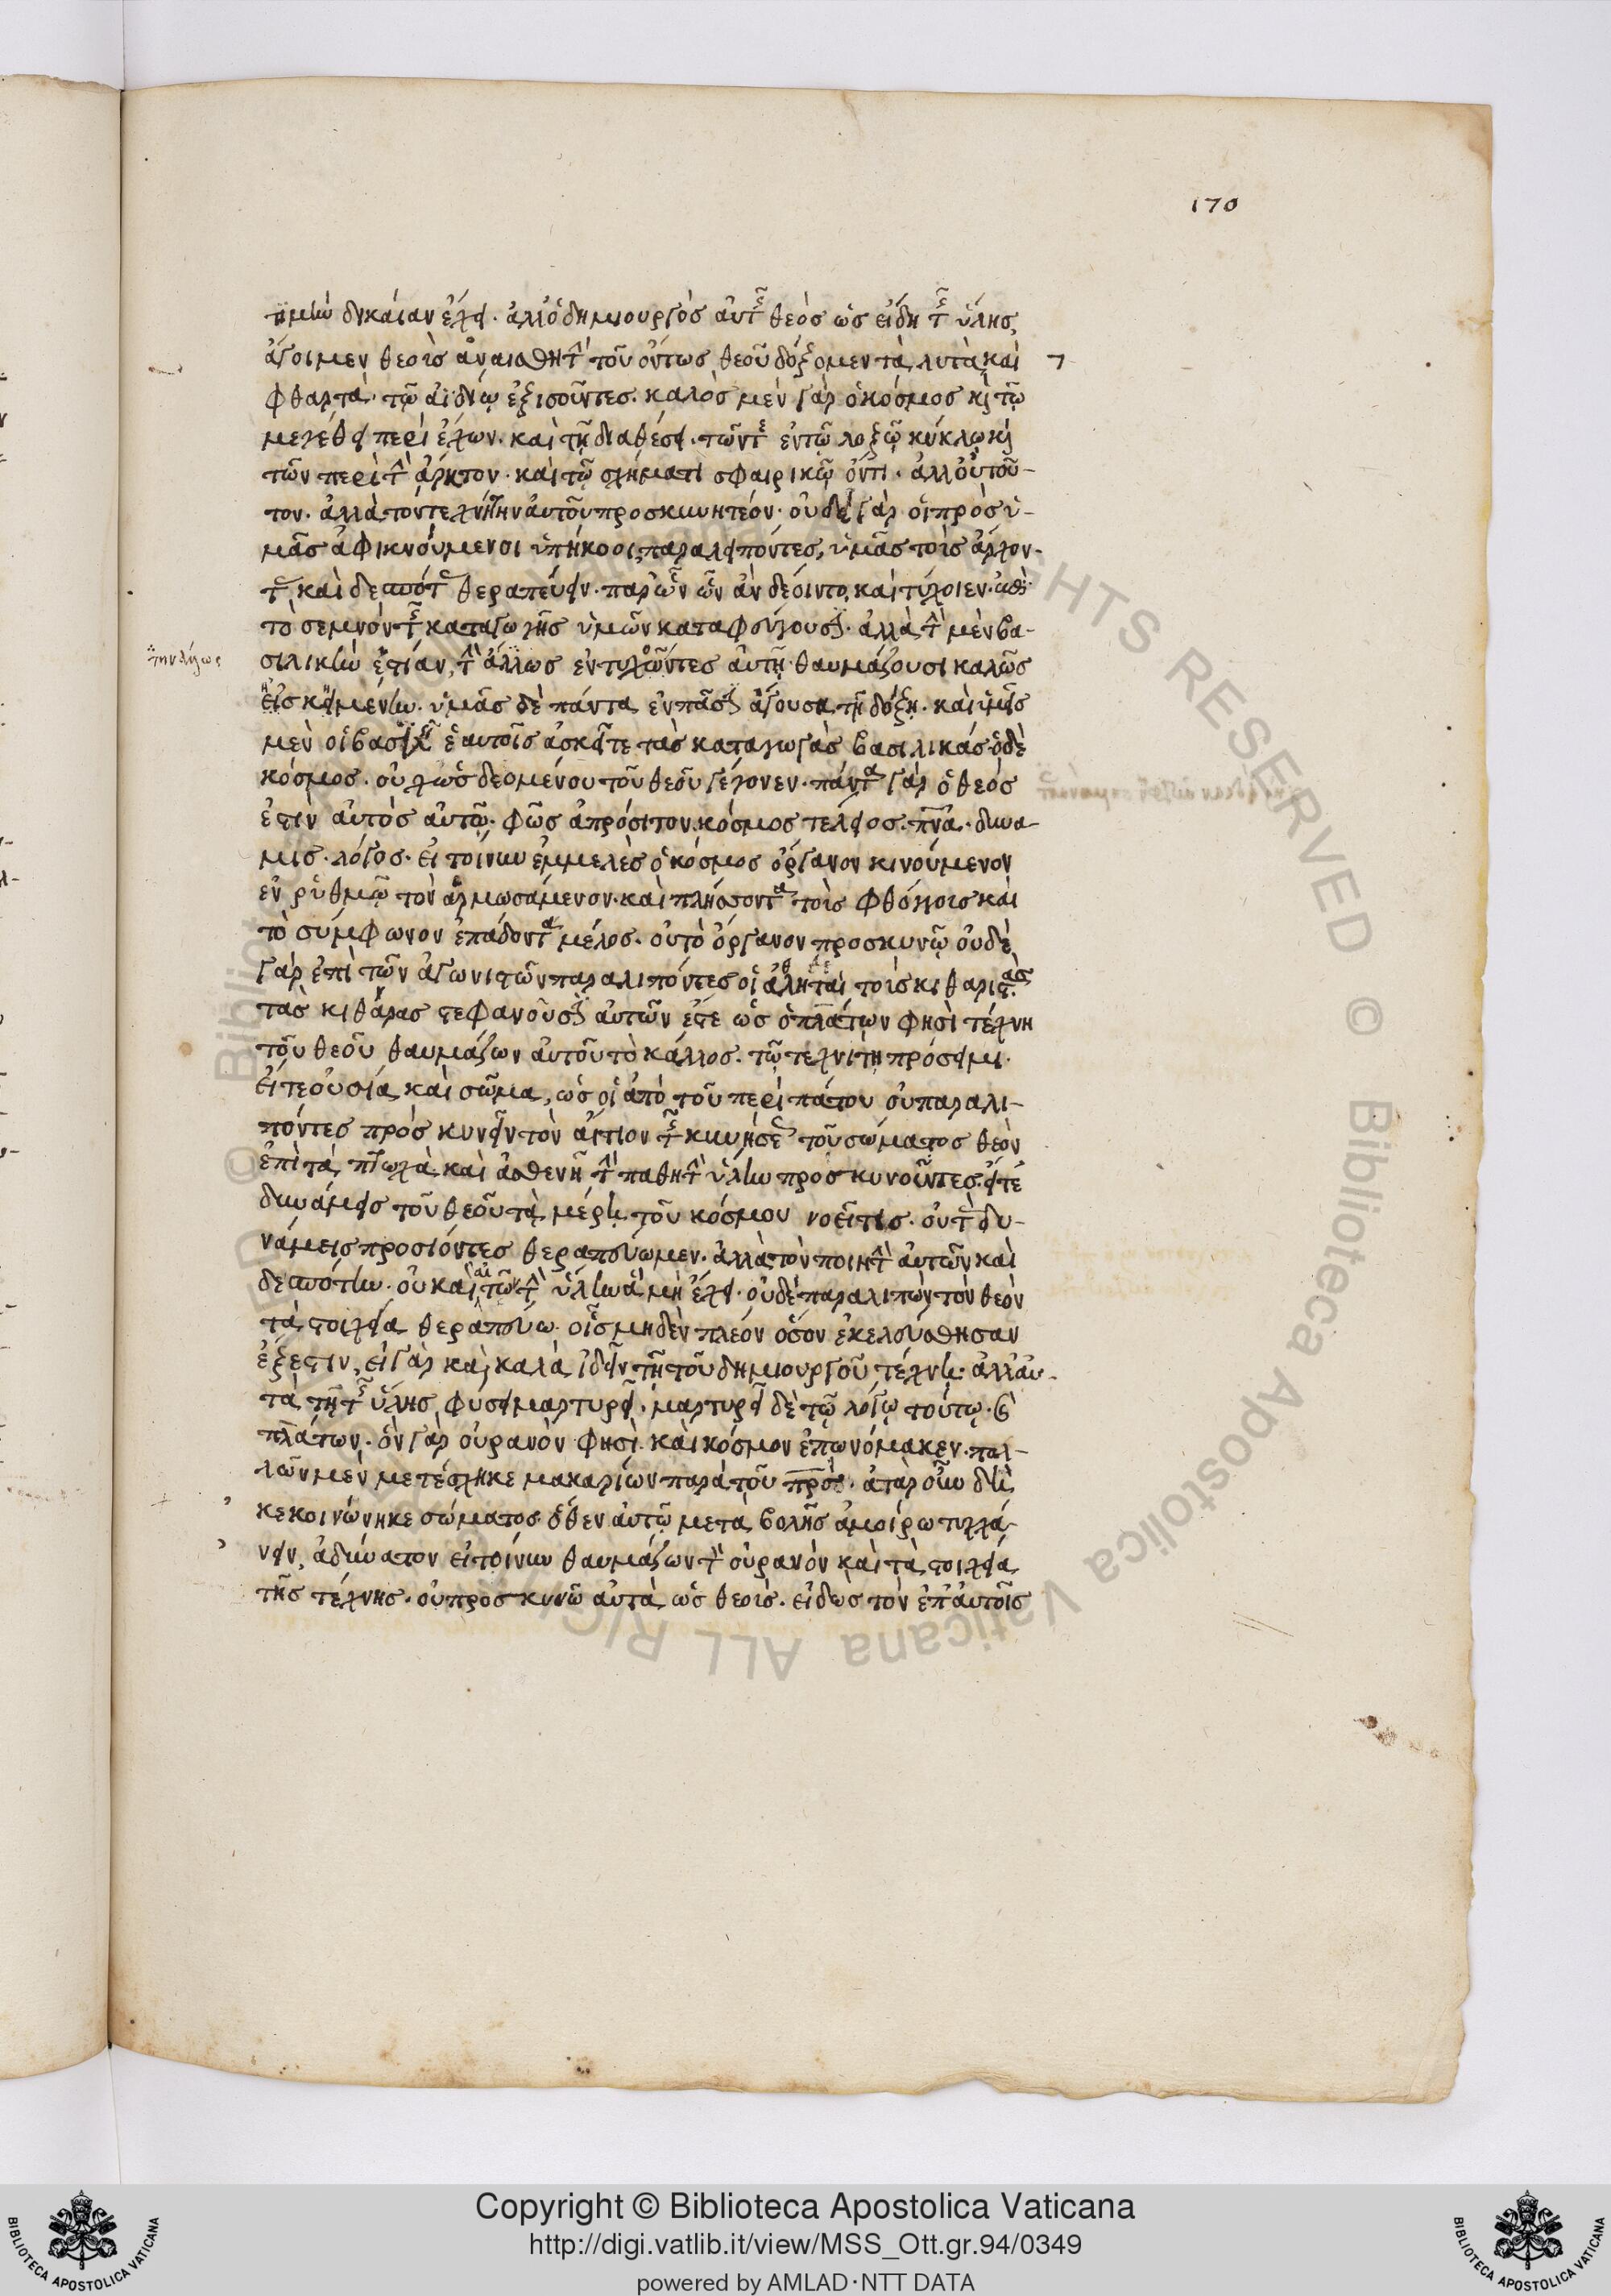 τιμὴν δικαίαν ἔχει. ἀλλ' ὁ δημιουργὸς αὐτῆς θεὸς ὡς εἰ εἴδη τῆς ὕλης
ἄγοιμεν θεοὺς ἀναισθητὴν τοῦ ὄντως θεοῦ δόξομεν τὰ λυτὰ καὶ
φθαρτὰ· τῷ ἀϊδίῳ ἐξισοῦντες· καλὸς μὲν γὰρ ὁ κόσμος καὶ τῷ
μεγέθει περὶ ἔχων· καὶ τῇ διαθέσει· τῶν τε ἐν τῷ λοξῷ κύκλῳ καὶ
τῶν περὶ τὴν ἄρκτον· καὶ τῷ σχήματι σφαιρικῷ ὄντι· ἀλλ' οὐ τοῦ-
τον· ἀλλὰ τὸν τεχνίτην αὐτοῦ προσκυνητέον· οὐδὲ γὰρ οἱ πρὸς ὑ-
μᾶς ἀφικνούμενοι ὑπήκοοι παραλειπόντες, ὑμᾶς τοὺς ἄρχον-
τας καὶ δεσπότας θεραπεύειν· παρ' ὧν ὧν ἂν δέοιντο, καὶ τύχοιεν· ἐπὶ
τὸ σεμνὸν τῆς καταγωγῆς ὑμῶν καταφεύγουσι· ἀλλὰ τὴν μὲν βα-
τὴν ἄλλως
σιλικὴν ἑστίαν, τὴν ἄλλως ἐντυχόντες αὐτῇ θαυμάζουσι καλῶς
ἠσκημένην· ὑμᾶς δὲ πάντα ἐν πᾶσι ἄγουσι τῇ δόξῃ· καὶ ὑμεῖς
μὲν οἱ βασιλεῖς ἑαυτοῖς ἀσκεῖτε τὰς καταγωγὰς βασιλικάς ὁ δὲ
κόσμος· οὐχ ὡς δεομένου τοῦ θεοῦ γέγονεν· πάντα γὰρ ὁ θεός
ἐστὶν αὐτὸς αὐτῷ· φῶς ἀπρόσιτον κόσμος τέλειος· πνα· δυνα-
μις· λόγος· εἰ τοίνυν ἐμμελὲς ὁ κόσμος ὄργανον κινούμενον
ἐν ῥυθμῷ τὸν ἁρμοσάμενον· καὶ πλήσσοντα τοὺς φθόγγους καὶ
τὸ σύμφωνον ἐπάδοντα μέλος· οὐ τὸ ὄργανον προσκυνῶ οὐδὲ
γὰρ ἐπὶ τῶν ἀγωνιστῶν παραλιπόντες οἱ ἀθληταὶ τοὺς κιθαριστὰς
τὰς κιθάρας στεφανοῦσι αὐτῶν εἴτε ὡς ὁ πλάτων φησὶ τέχνη
τοῦ θεοῦ θαυμάζων αὐτοῦ τὸ κάλλος· τῷ τεχνίτῃ πρόσειμι·
εἴτε οὐσία καὶ σῶμα, ὡς οἱ ἀπὸ τοῦ περιπάτου οὐ παραλι-
πόντες προσκυνεῖν τὸν αἴτιον τῆς κινήσεως τοῦ σώματος θεὸν
ἐπὶ τὰ πτωχὰ καὶ ἀσθενῆ τὴν παθητὴν ὕλην προσκυνοῦντες· εἴτε
δυνάμεις τοῦ θεοῦ τὰ μέρη τοῦ κόσμου νοεῖ τις· οὐ τὰς δυ-
νάμεις προσιόντες θεραπεύωμεν· ἀλλὰ τὸν ποιητὴν αὐτῶν καὶ
δεσπότην· οὐκ αἰτῶ τὴν ὕλην ἃ μὴ ἔχει· οὐδὲ παραλιπὼν τὸν θεὸν
τὰ στοιχεῖα θεραπεύω· οἷς μηδὲν πλέον ὅσον ἐκελεύσθησαν
ἔξεστιν, εἰ γὰρ καὶ καλὰ ἰδεῖν τῇ τοῦ δημιουργοῦ τέχνῃ· ἀλλ' αὐ-
τὰ τῇ τῆς ὕλης φύσει μαρτυρεῖ· μαρτυρεῖ δὲ τῷ λόγῳ τούτῳ· καὶ
πλάτων· ὃν γὰρ οὐρανὸν φησὶ καὶ κόσμον ἐπωνόμακεν· πολ-
λῶν μὲν μετέσχηκε μακαρίων παρὰ τοῦ πρς· ἀτὰρ οὖν δὴ
κεκοινώνηκε σώματος ὅθεν αὐτῷ μεταβολῆς ἀμοίρω τυγχά-
νειν, ἀδύνατον εἰ τοίνυν θαυμάζων τὸν οὐρανὸν καὶ τὰ στοιχεῖα
τῆς τέχνης· οὐ προσκυνῶ αὐτὰ ὡς θεούς· εἰδὼς τὸν ἐπ' αὐτοῖς
170
Copyright © Biblioteca Apostolica Vaticana
http://digi.vatlib.it/view/MSS_Ott.gr.94/0349
powered by AMLAD·NTT DATA